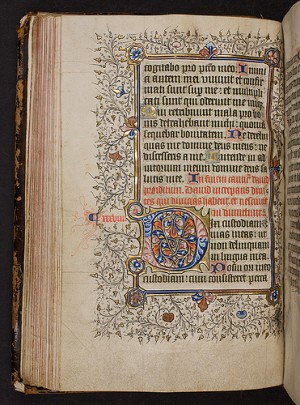 cogitabo pro pecco meo. Inimi
ci autem mei vivunt et confir
mati sunt sup me: et multipli
cati sunt qui oderunt me iniq
Qui retribuunt mala pro bo
nis detrahebant michi: quoniam
sequebar bonitatem. Ne derelin
quas me domine deus meus: ne
discesseris a me. Intende in ad
iutorium meum domine deus sa
lutis mee. In finem
David
divicias
Dixi custodiam
vias meas: ut
non delinquam
in lingua mea.
Posui ori meo
custodiam: cum consisteret pecca